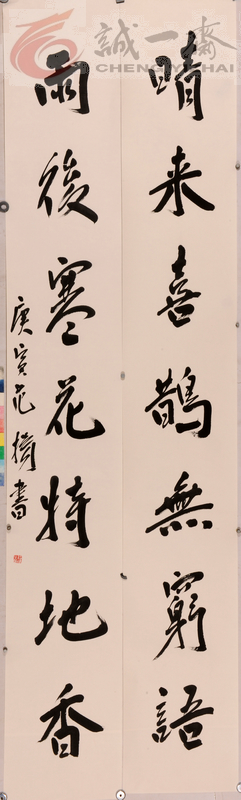 晴来喜鹊無窮語
雨後寒花特地香
庚寅范脩書
誠一齋
CHENGYIZHAI